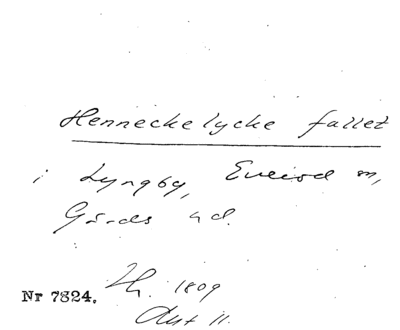 Henneckelycke fallet
i Lyngby, Everöd sn,
Gärds hd.
Nr 7824. 1809
Akt 11.